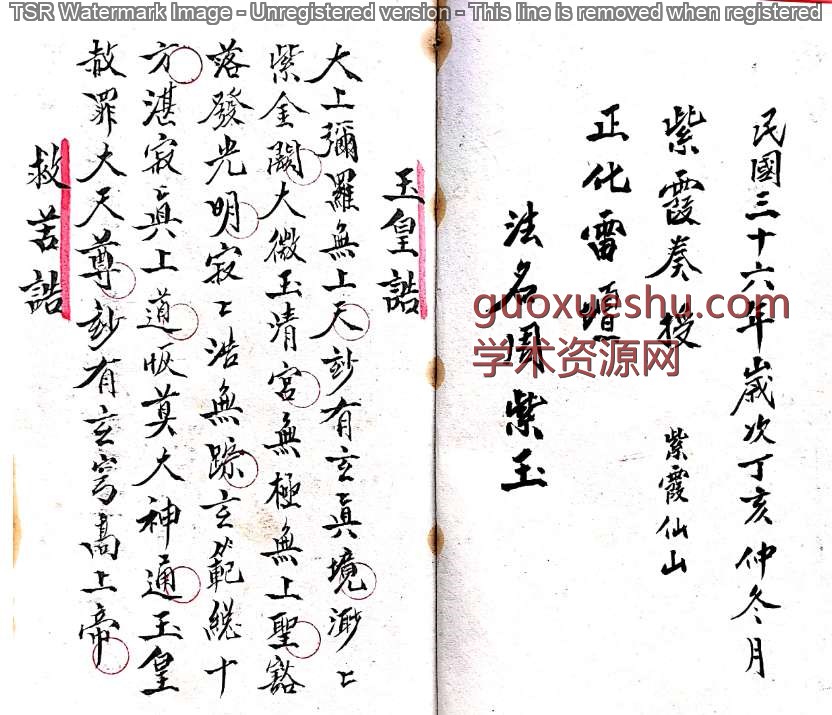 TSR Watermark Image - Unregistered version - This line is removed when registered
民國三十六年歲次丁亥仲冬月
紫霞奏授 紫霞仙山
正化雷壇
法名周紫玉
guoxueshu.com
学术资源网
玉皇誥
大上彌羅無上天玅有玄眞境渺〻
紫金闕大微玉清宮無極無上聖豁
落發光明寂〻浩無踪玄範総十
方湛寂〻眞上道恢莫大神通玉皇
赦罪大天尊玅有玄穹高上帝
救苦誥